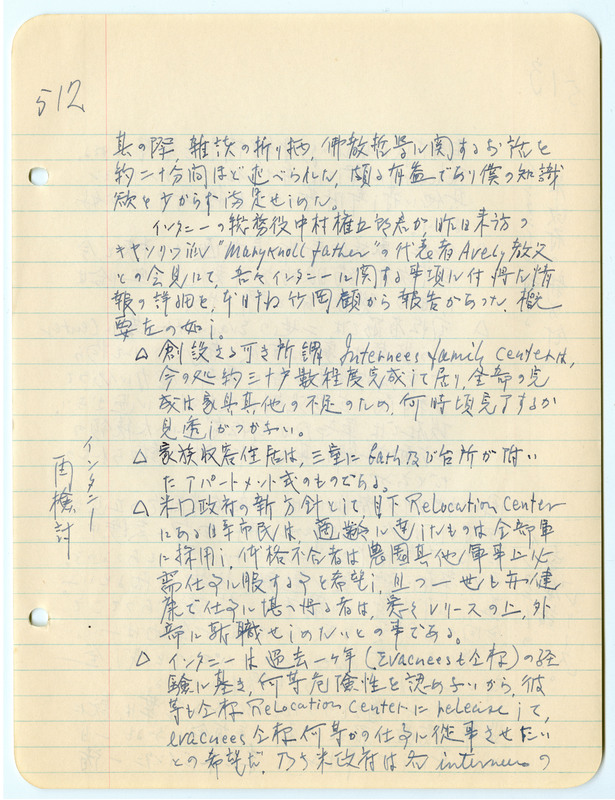 512
其の際、雑談の折り柄、佛教哲学に関するお話を
約二十分間ほど述べられた、頗る有益であり僕の知識
欲を少からず満足せしめた。
インタニーの総務役中村権五郎君が、昨日来訪の
"Maryknoll father"の代表者Avely教父
との会見にて、吾々インタニーに関する事項に付得た情
報の詳細を、本日 竹岡顧から報告があった、概
要左の如し。
△ 創設さる可き所謂 Internees family centerは、
今の処約三十戸数程度完成して居り、全部の完
成は家具其他の不足のため、何時頃完了するか
見透しがつかない。
△ 家族収容住居は、三室にbath及び台所が付い
たアパートメント式のものである。
△ 米口政府の新方針として、目下Relocation Center
にある日系市民は、適齢に達したものは全部軍
に採用し、体格不合者は農園其他軍事上必
需仕事に服する事を希望し、且つ一世も亦健
康で仕事に堪へ得る者は、悉くレリースの上、外
部に就職せしめたいとの事である。
インタニー
再検討
△ インタニーは過去一ヶ年(Evacneesも仝様)の経
験に基き、何等危険性を認めないから、彼
等も仝様Relocation Centerにreleiseして、
evacnees仝様何等かの仕事に従事させたい
との希望だ、乃ち米政府は各interneesの